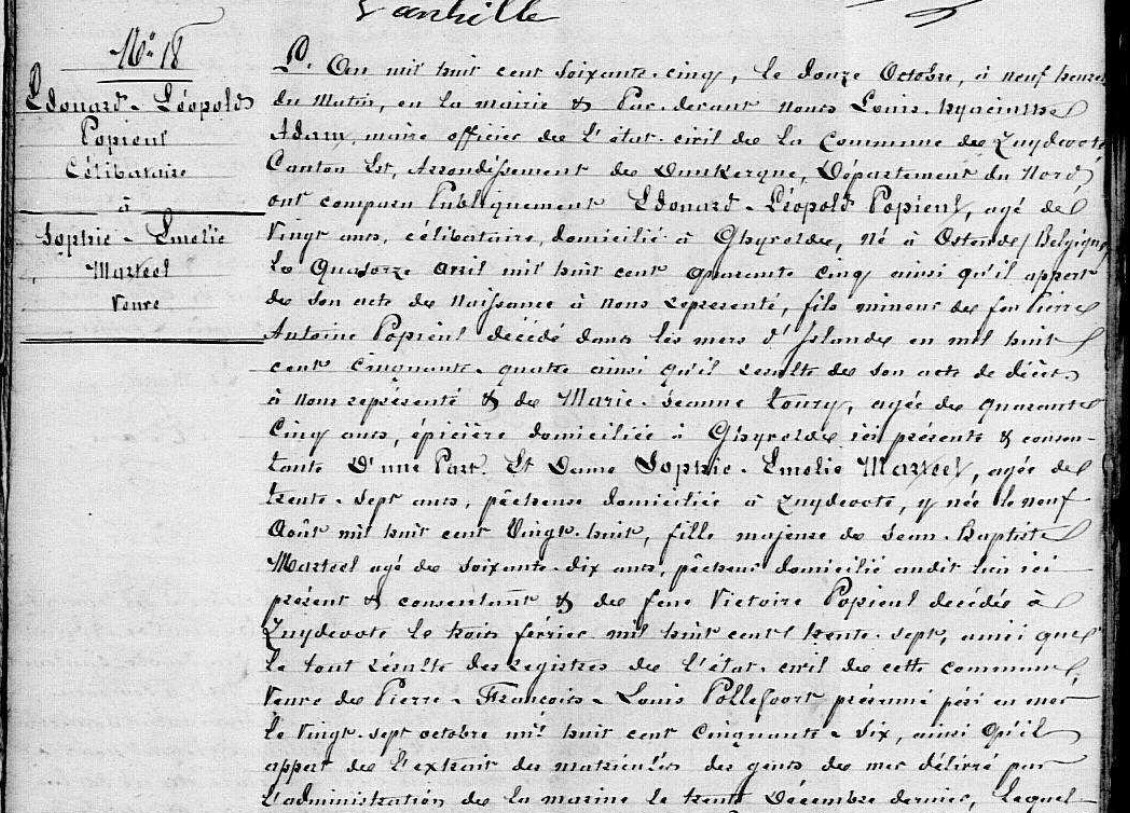 Vanhille
N° 18
Edouard-Léopold
Popieul
Célibataire
à
Sophie-Emelie
Marteel
Veuve
P. On mil huit cent soixante-cinq, le douze Octobre, à neuf heures
du Matin, en la mairie & Par-devant nous Louis-hyacinthe
Adam, maire officier de l'état-civil de la Commune de Zuydcoote
Canton Est, Arrondissement de Dunkerque, Département du Nord
ont comparu Publiquement Edouard-Léopold Popieul, agé de
Vingt ans, célibataire, domicilié à Ghyvelde, né à Ostende, Belgique,
Le Quatorze avril mil huit cent quarante cinq ainsi qu'il appert
de son acte de Naissance à nous representé, fils mineur de feu Pierre
Antoine Popieul décédé dans les mers d'Islande en mil huit
cent Cinquante-quatre ainsi qu'il resulte de son acte de décès
à nous représenté & de Marie-Jeanne agée de quarante
Cinq ans, épicière domiciliée à Ghyvelde ici présente & consen-
tante D'une Part. Et Dame Sophie-Emelie Marteel, agée de
trente-sept ans, pêcheuse domiciliée à Zuydcoote, y née le neuf
Août mil huit cent Vingt-huit, fille majeure de Jean-Baptiste
Marteel agé de soixante-dix ans, pêcheur domicilié audit lieu ici
présent & consentant & de feue Victoire Popieul décédée à
Zuydcoote le trois février mil huit cent trente-sept, ainsi que
le tout résulte des registres de l'état-civil de cette commune,
Veuve de Pierre-François-Louis Pollefoort présumé péri en mer
le vingt-sept octobre mil huit cent Cinquante-Six, ainsi qu'il
appert de l'extrait des matricules des gents de mer délivré par
L'administration de la marine le trente Décembre dernier, Lequel